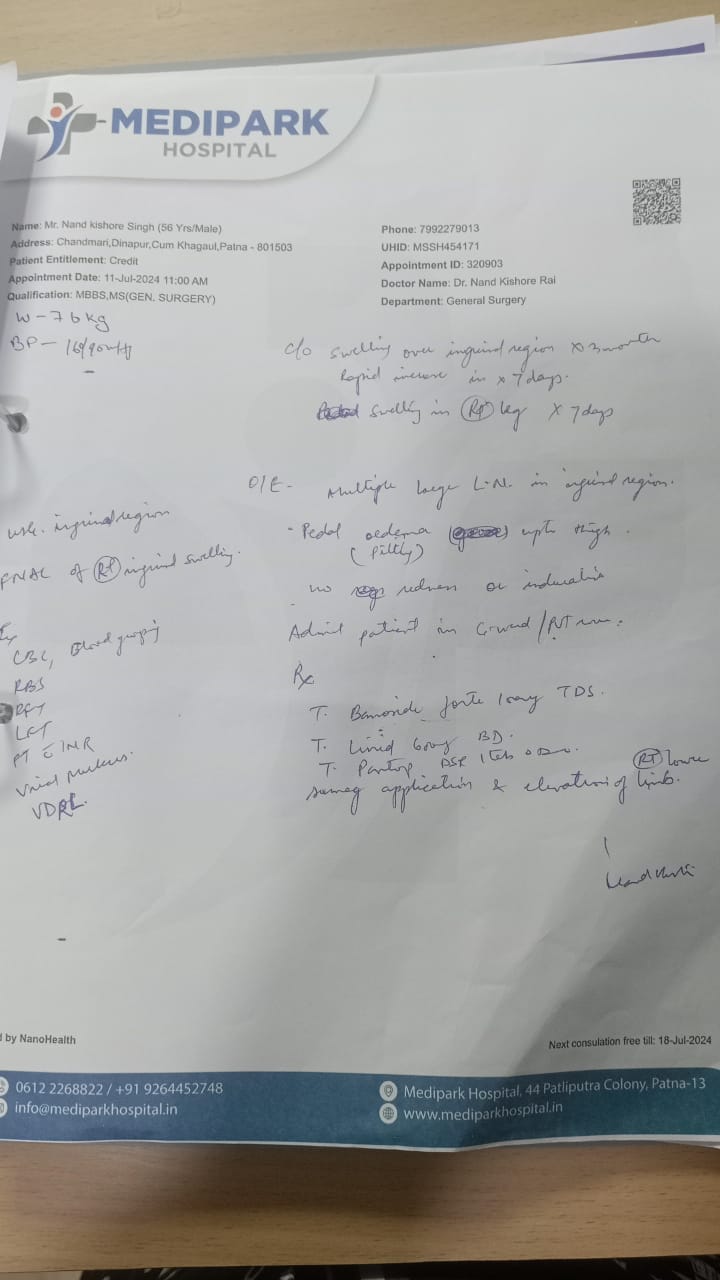 MEDIPARK
HOSPITAL
Name: Mr. Nand kishore Singh (56 Yrs/Male)
Address: Chandmari,Dinapur,Cum Khagaul,Patna - 801503
Patient Entitlement: Credit
Appointment Date: 11-Jul-2024 11:00 AM
Qualification: MBBS,MS(GEN. SURGERY)
Phone: 7992279013
UHID: MSSH454171
Appointment ID: 320903
Doctor Name: Dr. Nand Kishore Rai
Department: General Surgery
W - 76 kg
BP -
c/o swelling over inguinal region x 3 month
Rapid increase in x 7 days.
swelling in Rt leg x 7 days
O/E - Multiple large L.N. in inguinal region.
- Pedal oedema upto thigh.
(Pitting)
no redness or induration
Admit patient in G-ward / PVT
Rx
T. forte TDS.
T. BD.
T. DSR 1 tab
application & elevation of RT lower limb.
inguinal region
FNAC of Rt inguinal swelling.
CBC, Blood grouping
RBS
RFT
LFT
PT INR
Viral markers.
VDRL.
d by NanoHealth
Next consulation free till: 18-Jul-2024
0612 2268822 / +91 9264452748
info@mediparkhospital.in
Medipark Hospital, 44 Patliputra Colony, Patna-13
www.mediparkhospital.in